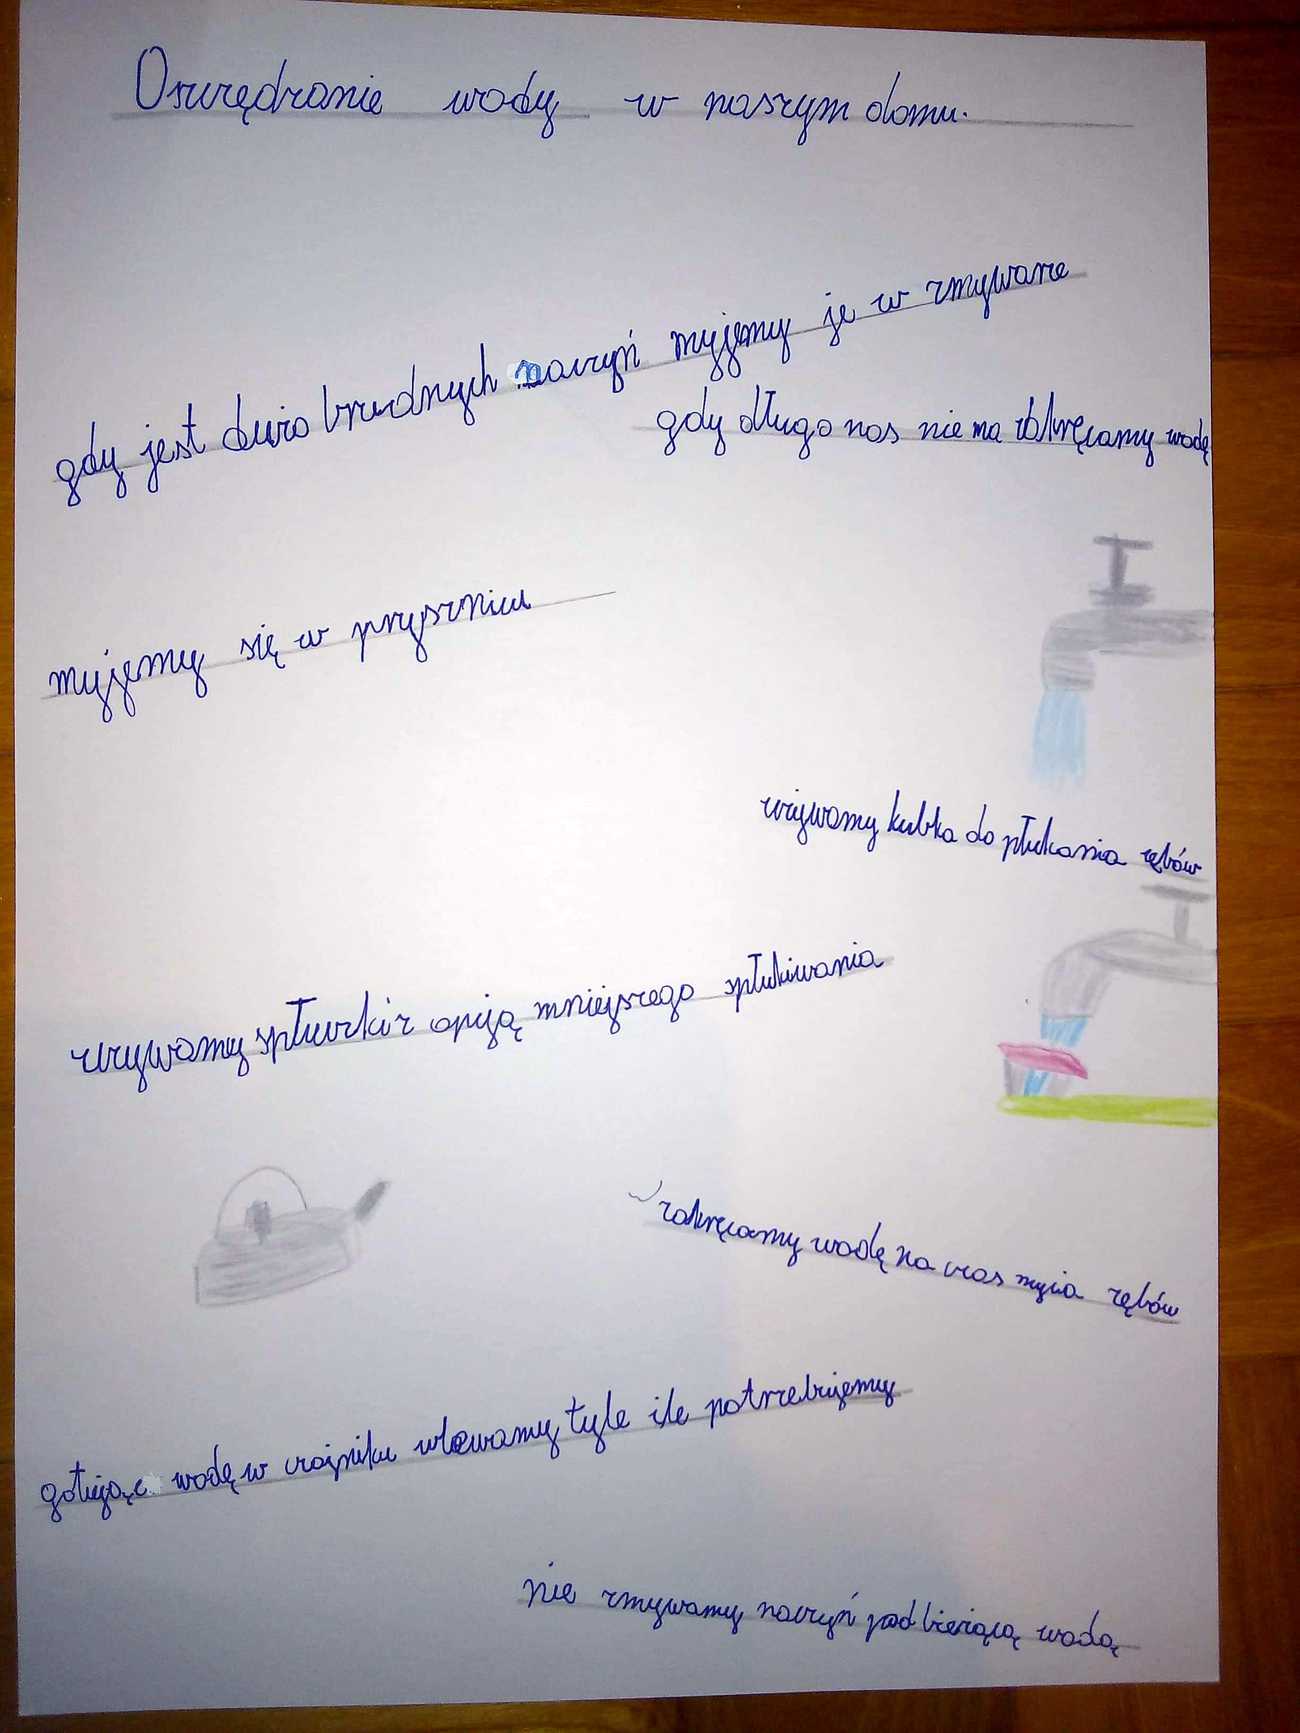 Oszczędzanie wody w naszym domu.
gdy jest dużo brudnych naczyń myjemy je w zmywarce
gdy długo nas nie ma zakręcamy wodę
myjemy się w prysznicu
używamy kubka do płukania zębów
używamy spłuczki z opcją mniejszego spłukiwania
zakręcamy wodę na czas mycia zębów
gotując wodę w czajniku wlewamy tyle ile potrzebujemy
nie zmywamy naczyń pod bieżącą wodą